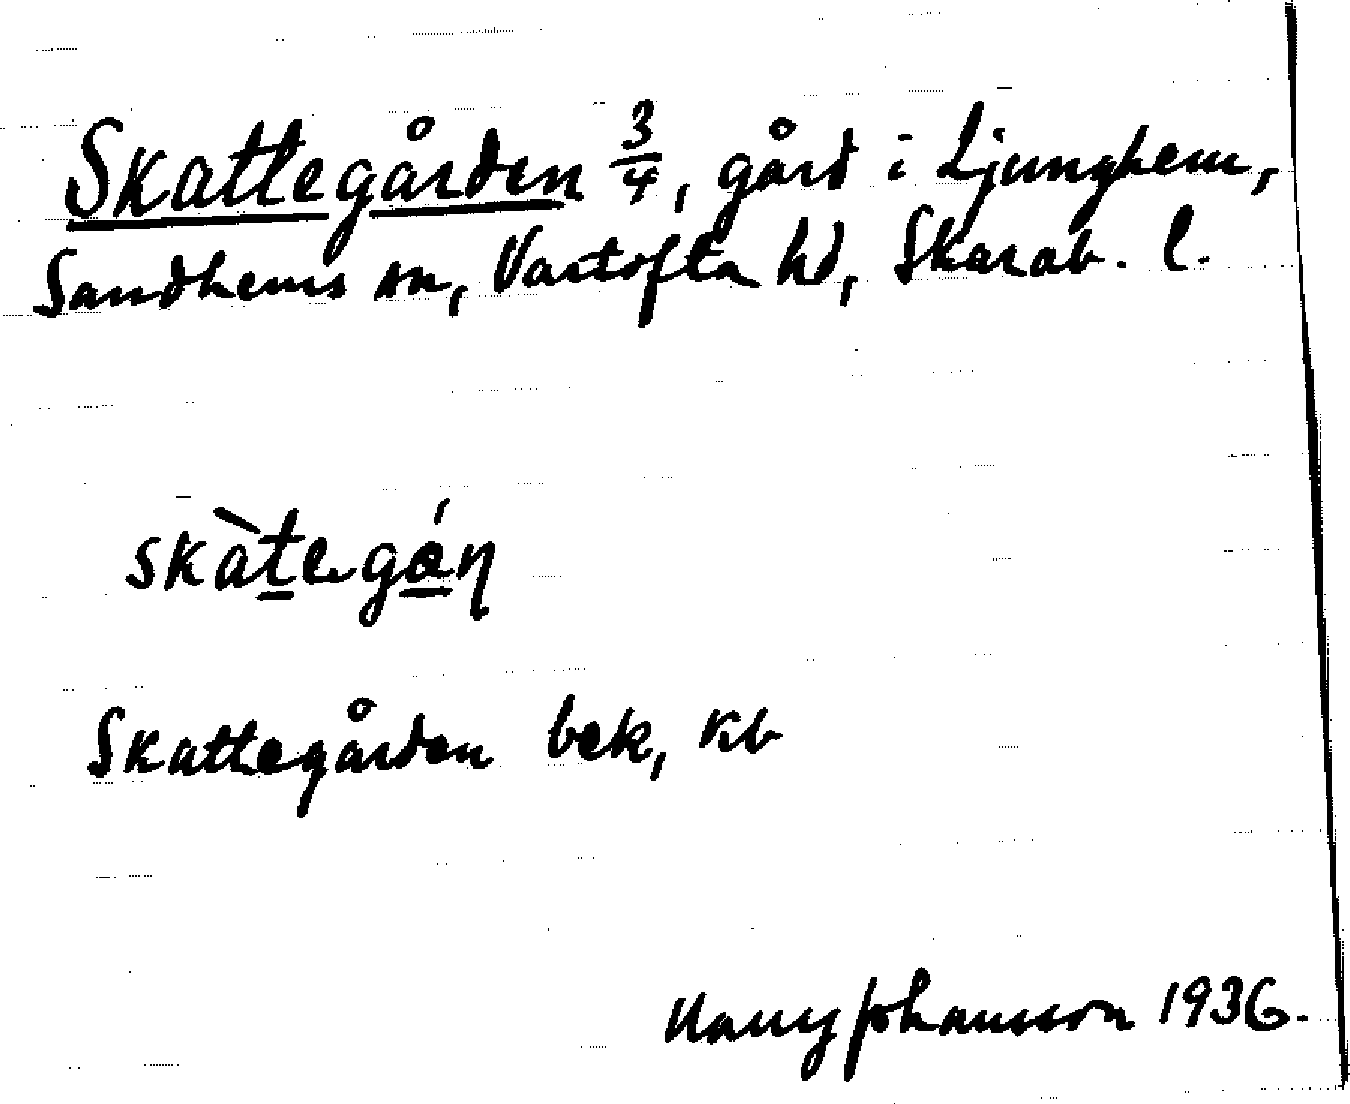 Skattegården 3/4, gård i Ljunghem,
Sandhems sn, Vartofta hd, Skarab. l.
skàtegǻɳ
Skattegården bek, kb
Johansson 1936.